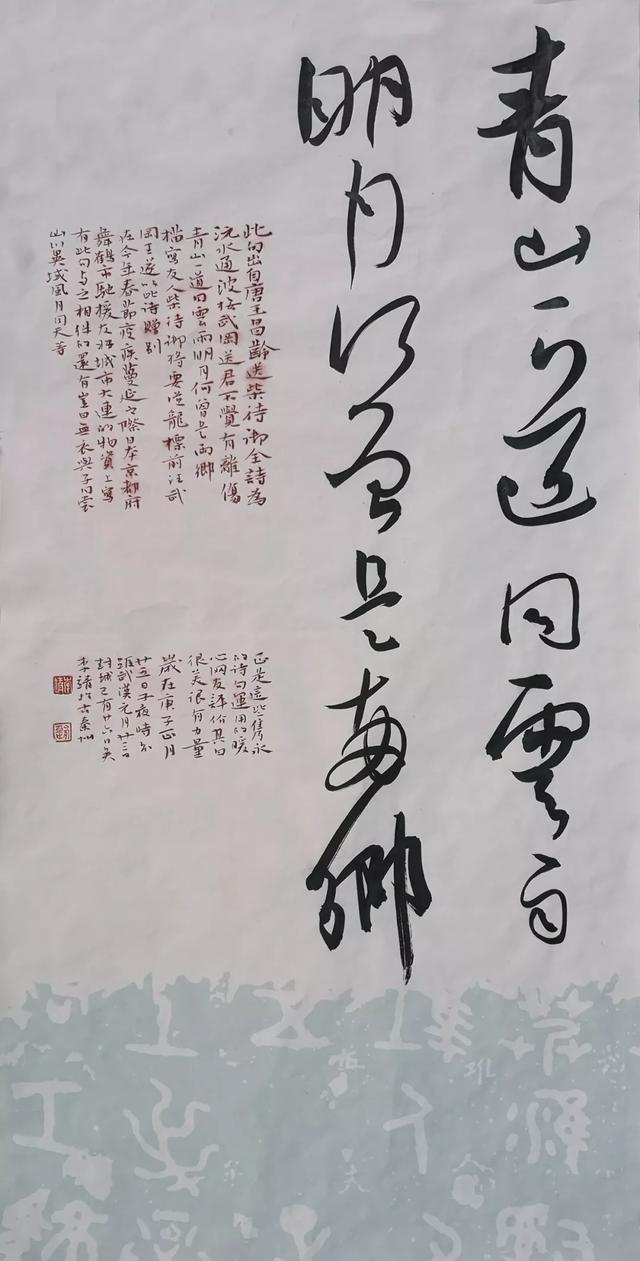 青山一道同雲雨
明月何曾是兩鄉
此句出自唐王昌齡送柴待御全詩為
沅水通波接武岡送君不覺有離傷
青山一道同雲雨明月何曾是兩鄉
當友人柴待御將要從龍標前往武
岡王遂以此詩贈別
在今年春節疫疾蔓延之際日本京都府
舞鶴市馳援友好城市大連的物資上寫
有此句与之相伴的還有豈曰無衣與子同裳
山川異域風月同天等
正是這些隽永
的詩句運用的暖
心网友評价其曰
很美很有力量
歲在庚子正月
廿五日子夜時分
距武漢元月廿三日
封城已有廿六日矣
李靖